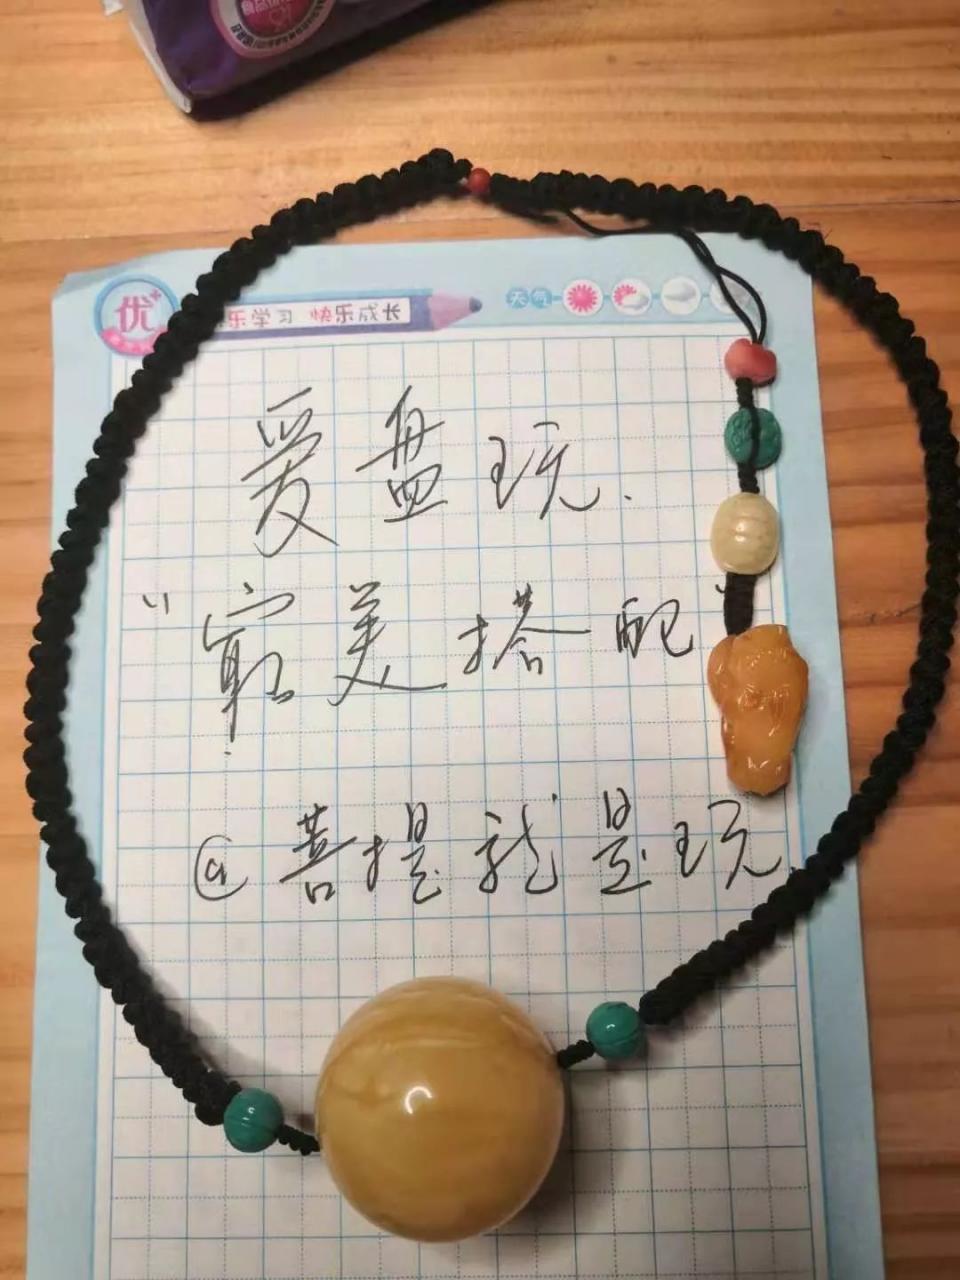 优+
乐学习 快乐成长
天气
爱盘玩.
"最美搭配"
@菩提就是玩.